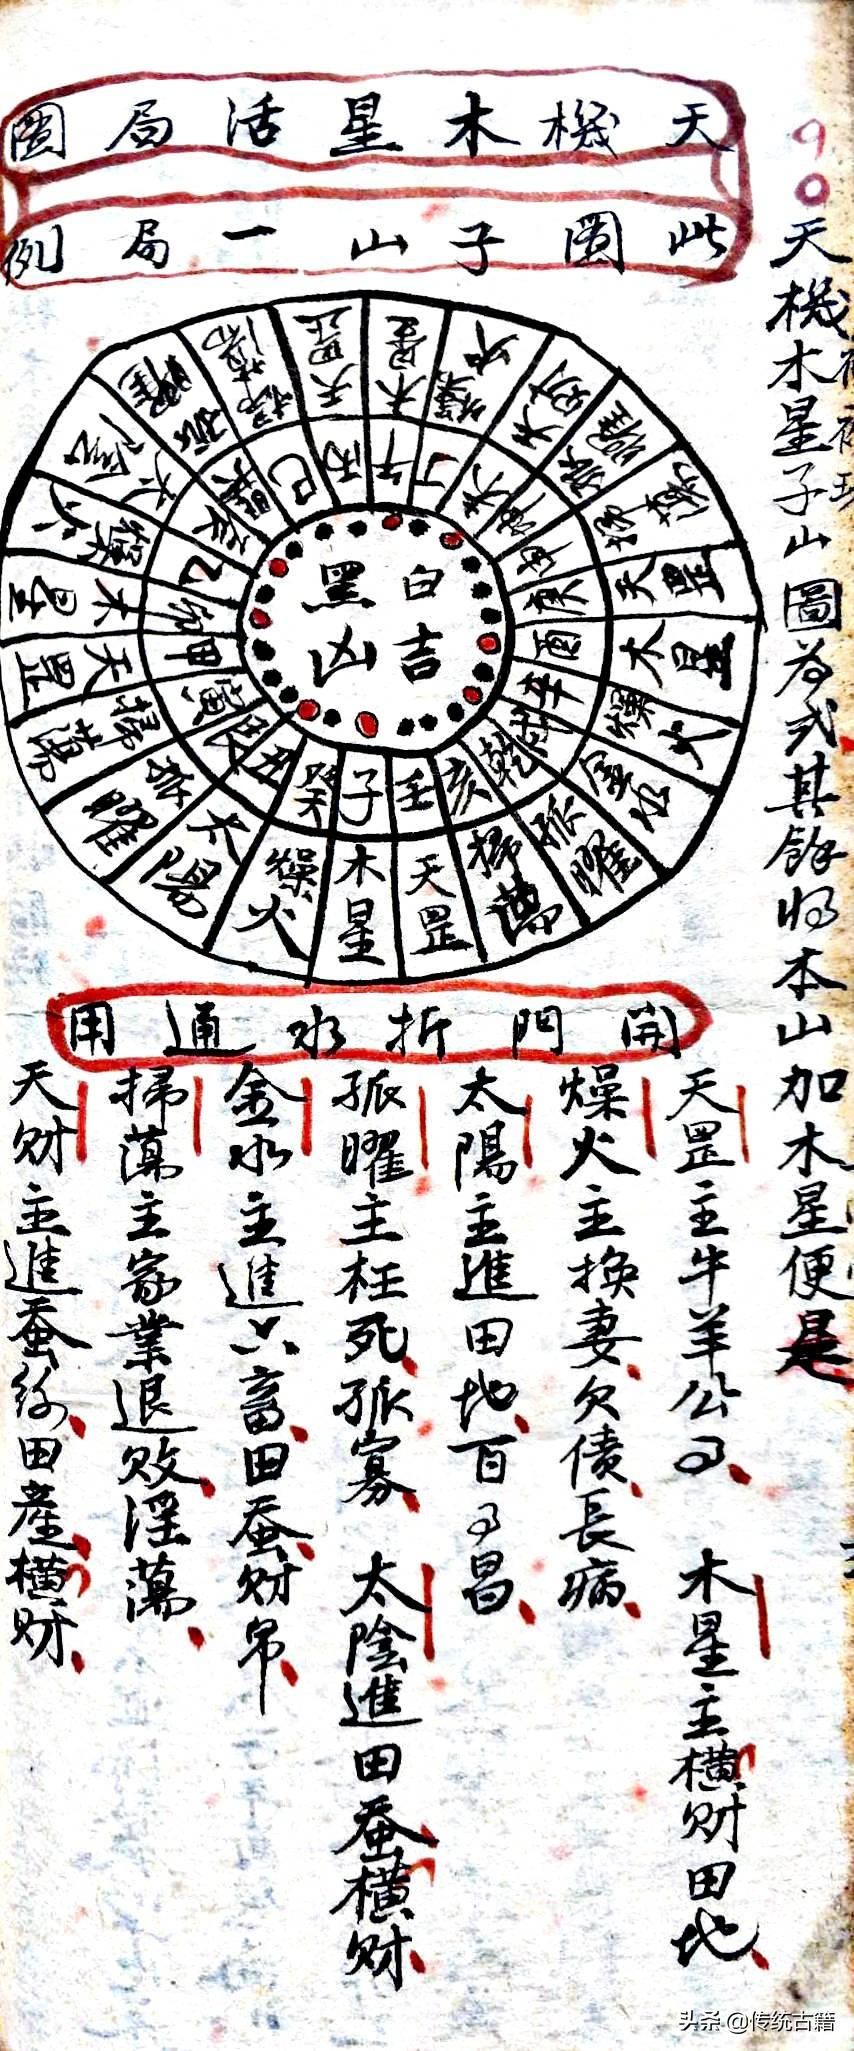 90
天機木星子山圖為式其餘將本山加木星便是
天機木星活局圖
此圖子山一局例
白吉
黑凶
子 木星
癸 燥火
丑 太陽
艮 孤曜
寅 掃蕩
甲 天罡
卯 木星
乙 燥火
辰 太陰
巽 孤曜
巳 掃蕩
丙 天罡
午 木星
丁 燥火
未 天財
坤 孤曜
申 掃蕩
庚 天罡
酉 木星
辛 燥火
戌 金水
乾 孤曜
亥 掃蕩
壬 天罡
開門折水通用
天罡主牛羊公事 木星主橫財田地
燥火主換妻欠債長病
太陽主進田地百事昌
孤曜主枉死孤寡 太陰進田蚕橫財
金水主進六畜田蚕財帛
掃蕩主家業退敗淫蕩
天財主進蚕絲田產橫財
头条 @传统古籍